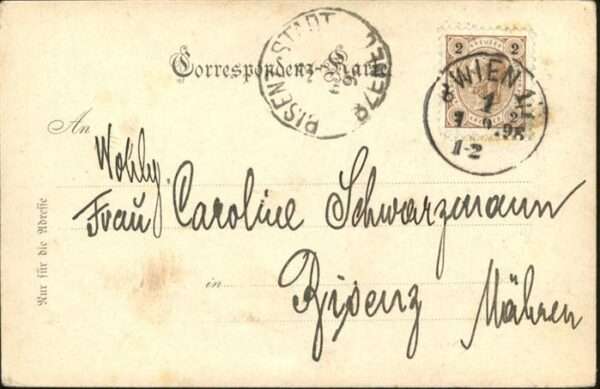 Correspondenz-Karte
BISENZ STADT
2 2
WIEN
1
7 9.98
1-2
An
Wohlg.
Frau Caroline Schwarzmann
in Bisenz Mähren
Nur für die Adresse